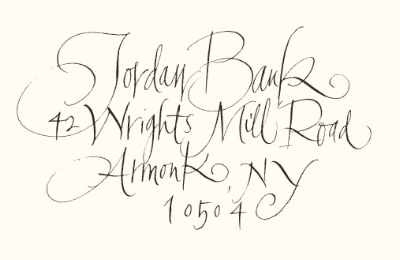 Jordan Bank
42 Wrights Mill Road
Armonk, NY
10504